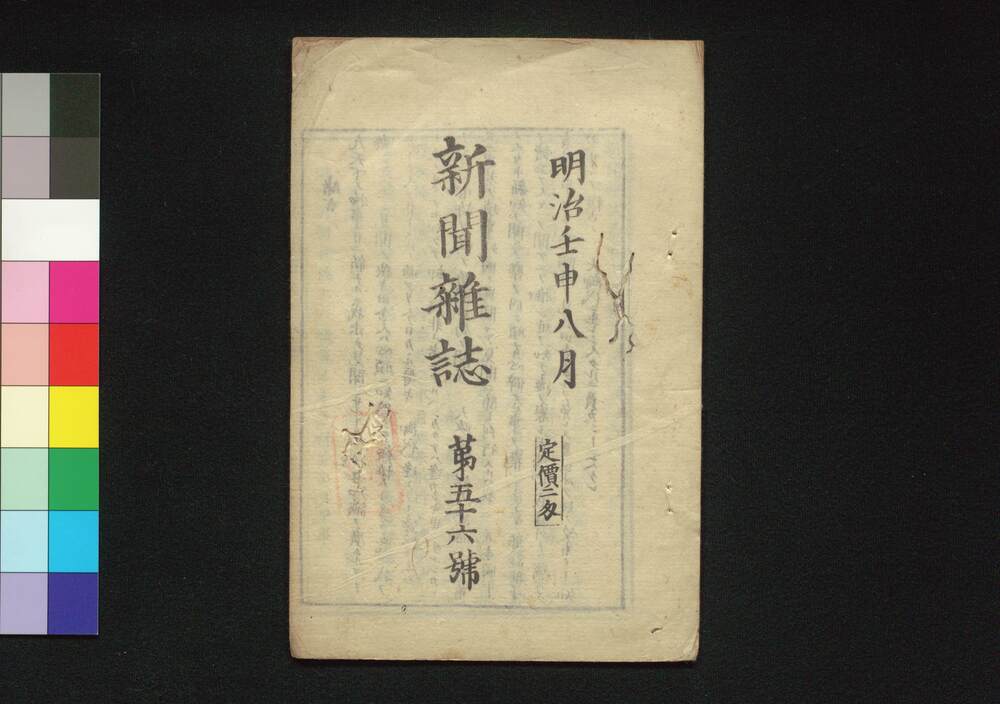 明治壬申八月
定價二匁
新聞雜誌
第五十六號